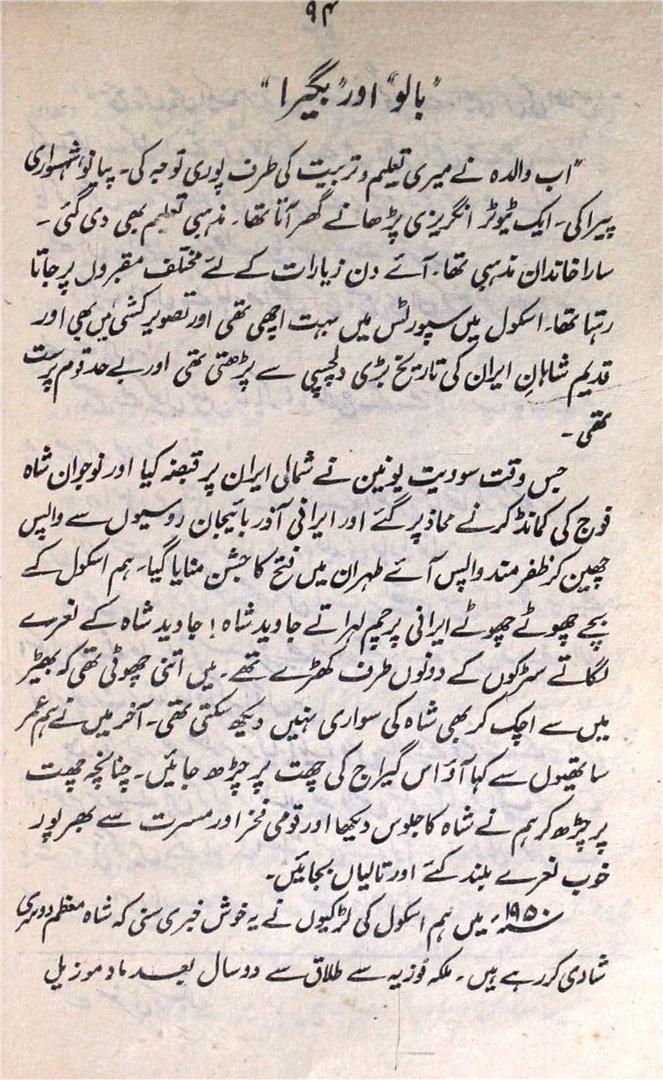 ۹۴
"بالو" اور "بگیرا"
"اب والدہ نے میری تعلیم و تربیت کی طرف پوری توجہ کی۔ پیانو، شہسواری
پیراکی۔ ایک ٹیوٹر انگریزی پڑھانے گھر آتا تھا۔ مذہبی تعلیم بھی دی گئی۔
سارا خاندان مذہبی تھا۔ آئے دن زیارات کے لئے مختلف مقبروں پر جاتا
رہتا تھا۔ اسکول میں سپورٹس میں بہت اچھی تھی اور تصویر کشی میں بھی اور
قدیم شاہانِ ایران کی تاریخ بڑی دلچسپی سے پڑھتی تھی اور بے حد قوم پرست
تھی۔
جس وقت سوویت یونین نے شمالی ایران پر قبضہ کیا اور نوجوان شاہ
فوج کی کمانڈ کرنے محاذ پر گئے اور ایرانی آذر بائیجان روسیوں سے واپس
چھین کر ظفر مند واپس آئے طہران میں فتح کا جشن منایا گیا۔ ہم اسکول کے
بچے چھوٹے چھوٹے ایرانی پرچم لہراتے جاوید شاہ! جاوید شاہ کے نعرے
لگاتے سڑکوں کے دونوں طرف کھڑے تھے۔ میں اتنی چھوٹی تھی کہ بھیڑ
میں سے اچک کر بھی شاہ کی سواری نہیں دیکھ سکتی تھی۔ آخر میں نے ہم عمر
ساتھیوں سے کہا آؤ اس گیراج کی چھت پر چڑھ جائیں۔ چنانچہ چھت
پر چڑھ کر ہم نے شاہ کا جلوس دیکھا اور قومی فخر اور مسرت سے بھر پور
خوب نعرے بلند کئے اور تالیاں بجائیں۔
۱۹۵۰ء میں ہم اسکول کی لڑکیوں نے یہ خوش خبری سنی کہ شاہ معظم دوسری
شادی کر رہے ہیں۔ ملکہ فوزیہ سے طلاق سے دو سال بعد مادموزیل